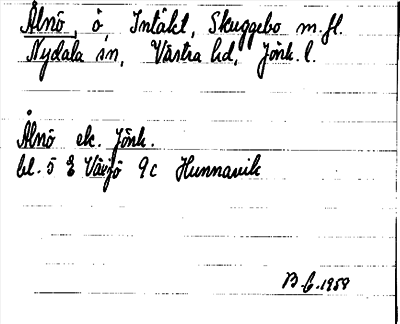 Ålnö, ö, Intäkt, Skuggebo m.fl.
Nydala sn, Västra hd, Jönk. l.
Ålnö ek. Jönk.
bl. 5 E Växjö 9c Hunnavik
B 6.1959